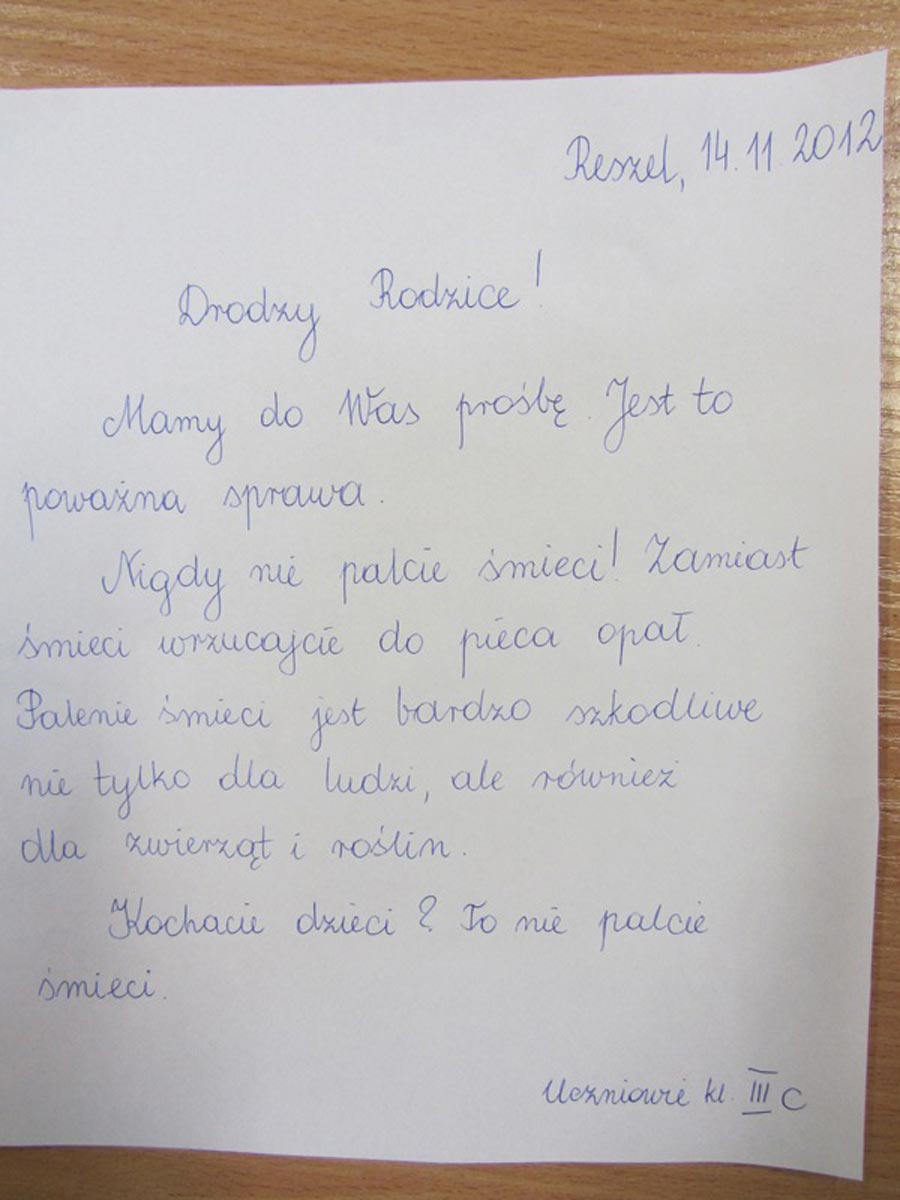 Reszel, 14.11.2012
Drodzy Rodzice!
Mamy do Was prośbę. Jest to
poważna sprawa.
Nigdy nie palcie śmieci! Zamiast
śmieci wrzucajcie do pieca opał.
Palenie śmieci jest bardzo szkodliwe
nie tylko dla ludzi, ale również
dla zwierząt i roślin.
Kochacie dzieci? To nie palcie
śmieci.
Uczniowie kl. III C